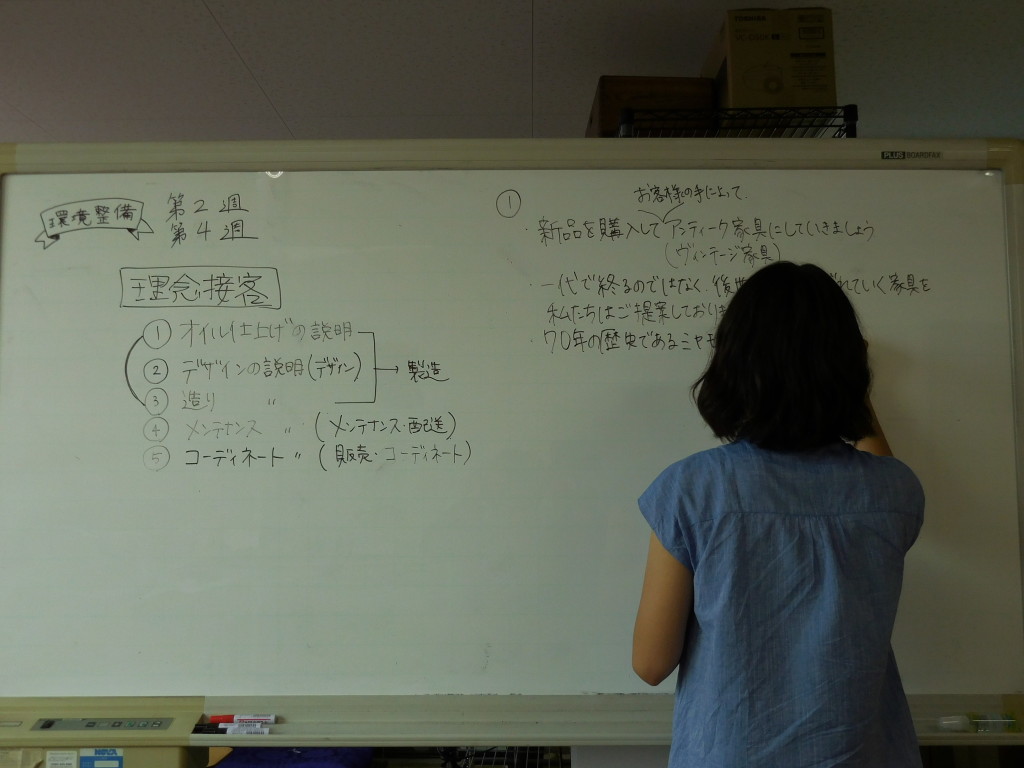 PLUS BOARDFAX
環境整備
第2週
第4週
理念接客
① オイル仕上げの説明
② デザインの説明(デザイン)
③ 造り 〃
→ 製造
④ メンテナンス 〃 (メンテナンス・配送)
⑤ コーディネート 〃 (販売・コーディネート)
①
お客様の手によって.
・新品を購入してアンティーク家具にしていきましょう
(ヴィンテージ家具)
・一代で終るのではなく、後世 れていく家具を
私たちはご提案しており
・70年の歴史である
TOSHIBA